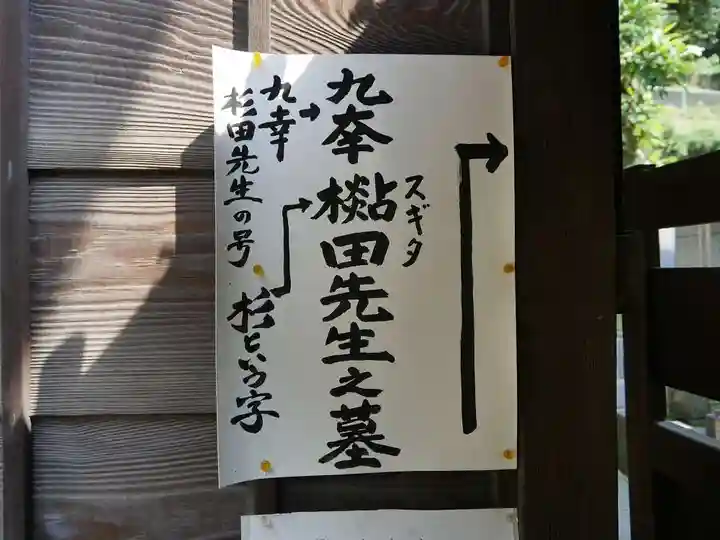 スギタ
九㚔田先生之墓
九幸
杉田先生の号
杉という字